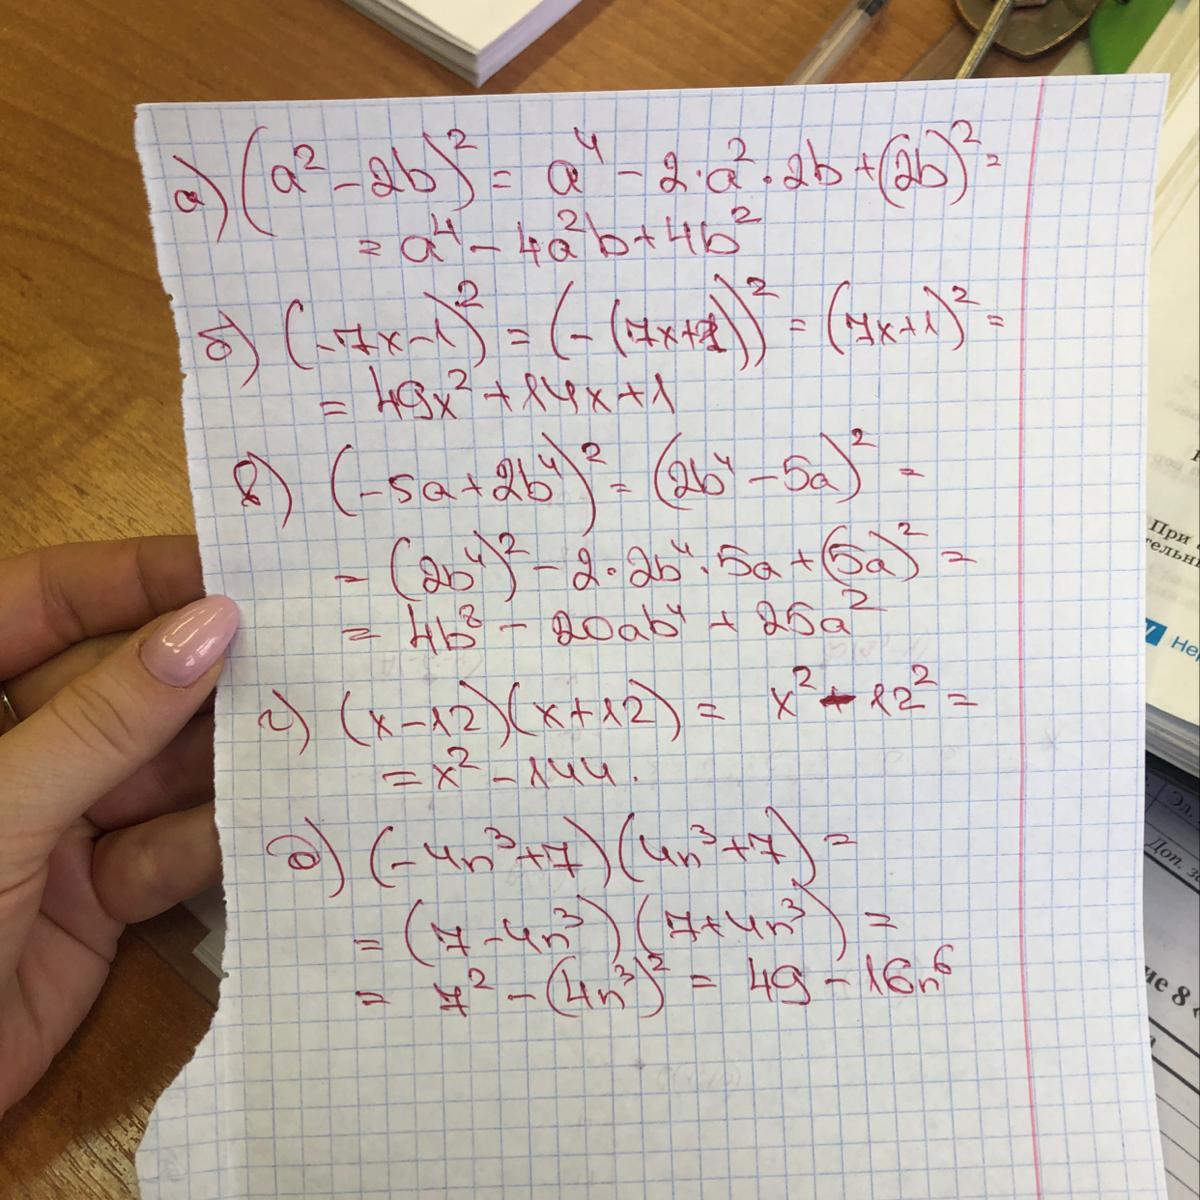 а) (a² - 2b)² = a⁴ - 2·a²·2b + (2b)² =
= a⁴ - 4a²b + 4b²
б) (-7x-1)² = (-(7x+1))² = (7x+1)² =
= 49x² + 14x + 1
в) (-5a+2b⁴)² = (2b⁴ - 5a)² =
= (2b⁴)² - 2·2b⁴·5a + (5a)² =
= 4b⁸ - 20ab⁴ + 25a²
г) (x-12)(x+12) = x² - 12² =
= x² - 144.
д) (-4n³+7)(4n³+7) =
= (7-4n³)(7+4n³) =
= 7² - (4n³)² = 49 - 16n⁶
При
Доп.